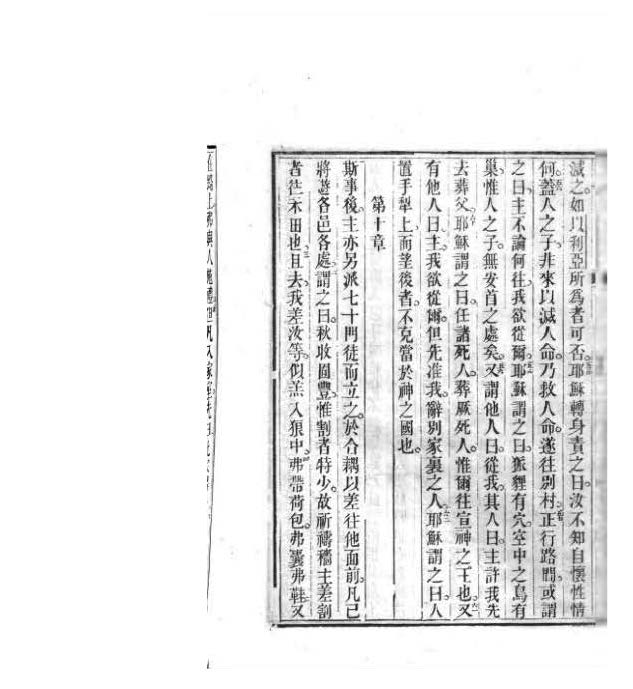 滅之如以利亞所為者可否。耶穌轉身責之曰汝不知自懷性情
何。蓋人之子非來以滅人命。乃救人命。遂往別村。正行路間。或謂
之曰主不論何往我欲從爾。耶穌謂之曰狐狸有穴。空中之鳥有
巢惟人之子無安首之處矣。又謂他人曰從我。其人曰主許我先
去葬父。耶穌謂之曰任諸死人葬厥死人。惟爾往宣神之王也。又
有他人曰主我欲從爾。但先准我辭別家裏之人。耶穌謂之曰人
置手犁上而望後者不克當於神之國也。
第十章
斯事後主亦另派七十門徒而立之。於合耦以差往他面前。凡己
將遊各邑各處謂之曰秋收固豐惟割者特少。故祈禱穡主差割
者往禾田也。且去我差汝等似羔入狼中。弗帶荷包弗囊弗鞋又